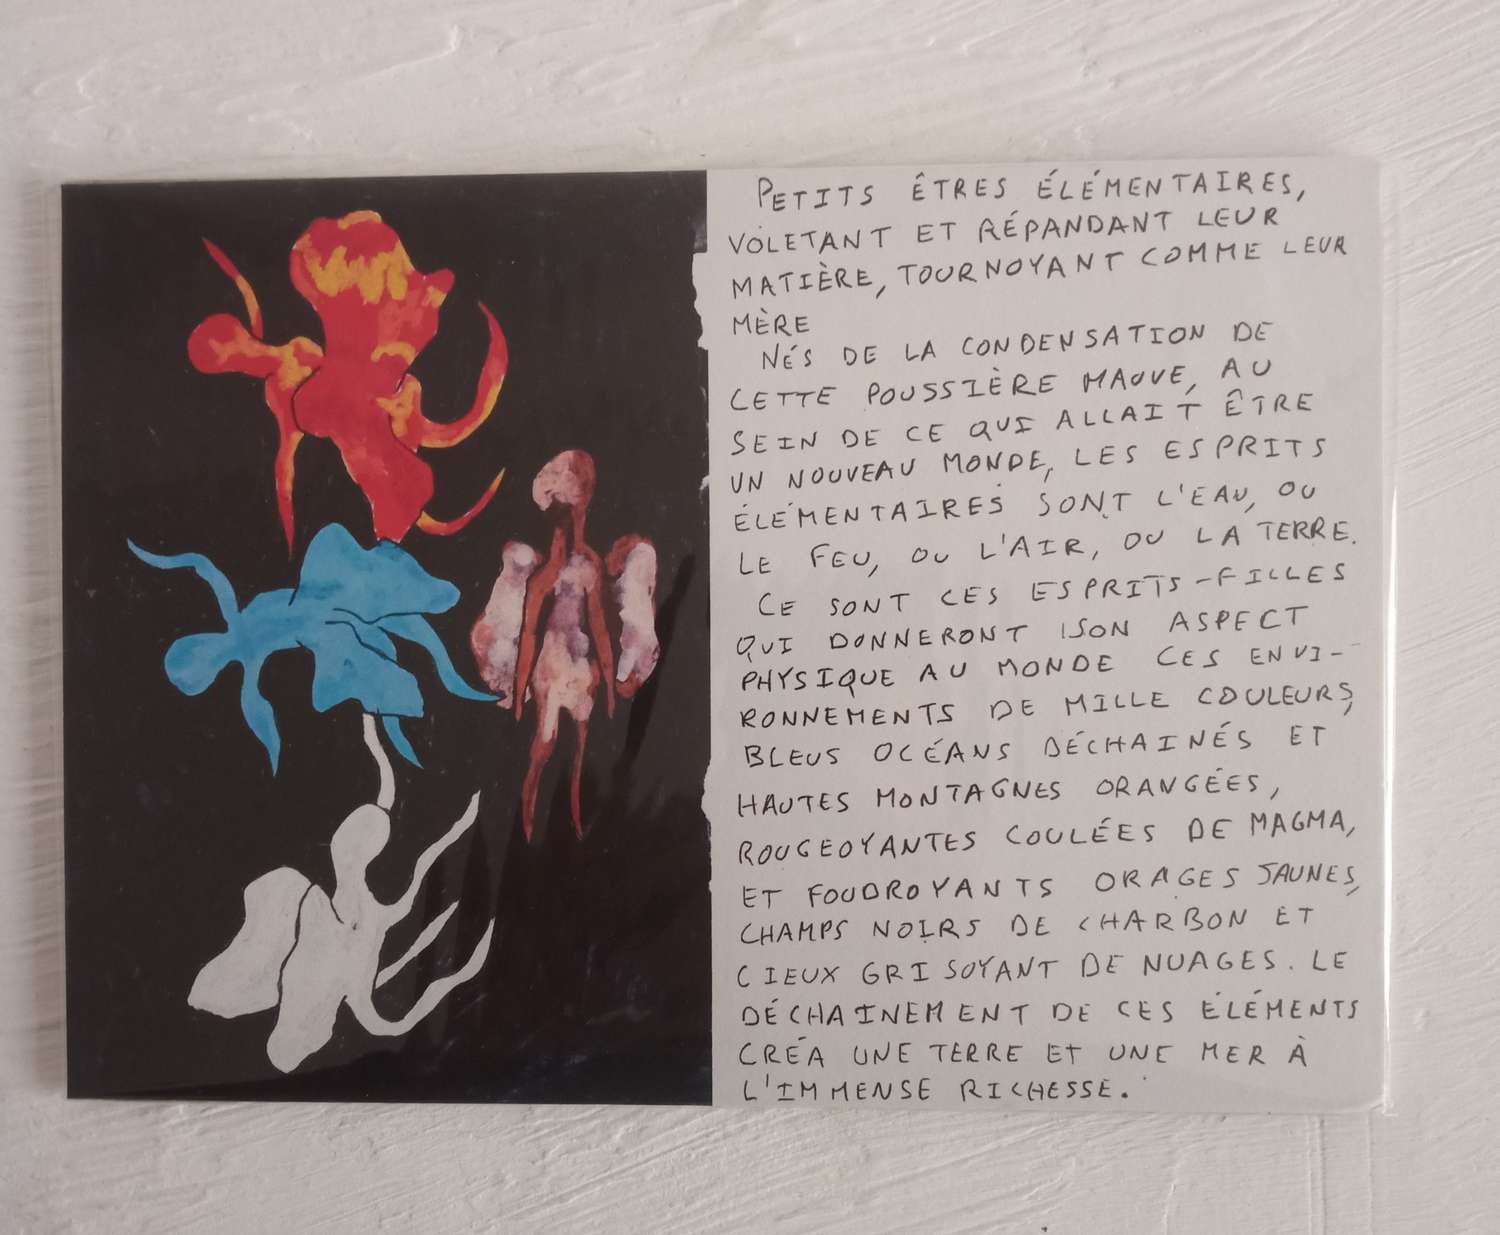 PETITS ÊTRES ÉLÉMENTAIRES,
VOLETANT ET RÉPANDANT LEUR
MATIÈRE, TOURNOYANT COMME LEUR
MÈRE
NÉS DE LA CONDENSATION DE
CETTE POUSSIÈRE MAUVE, AU
SEIN DE CE QUI ALLAIT ÊTRE
UN NOUVEAU MONDE, LES ESPRITS
ÉLÉMENTAIRES SONT L'EAU, OU
LE FEU, OU L'AIR, OU LA TERRE.
CE SONT CES ESPRITS-FILLES
QUI DONNERONT SON ASPECT
PHYSIQUE AU MONDE CES ENVI-
RONNEMENTS DE MILLE COULEURS,
BLEUS OCÉANS DÉCHAINÉS ET
HAUTES MONTAGNES ORANGÉES,
ROUGEOYANTES COULÉES DE MAGMA,
ET FOUDROYANTS ORAGES JAUNES,
CHAMPS NOIRS DE CHARBON ET
CIEUX GRISOYANT DE NUAGES. LE
DÉCHAINEMENT DE CES ÉLÉMENTS
CRÉA UNE TERRE ET UNE MER À
L'IMMENSE RICHESSE.